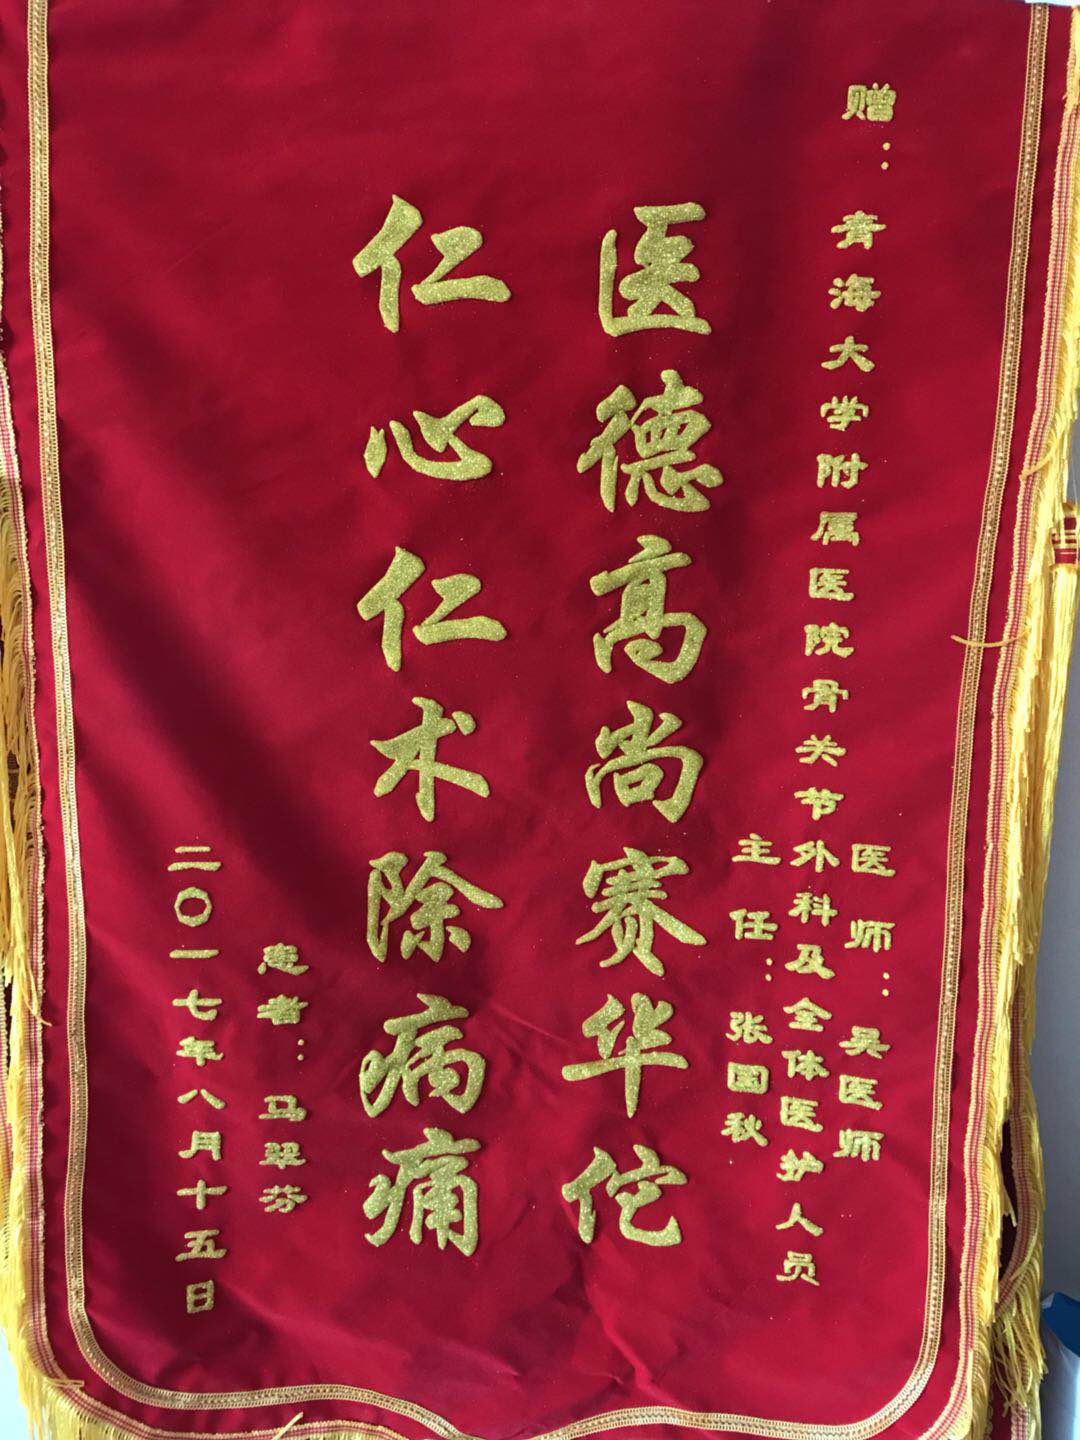 赠：青海大学附属医院骨关节外科及全体医护人员
医师：吴医师
主任：张国秋
医德高尚赛华佗
仁心仁术除病痛
患者：马翠芬
二〇一七年八月十五日